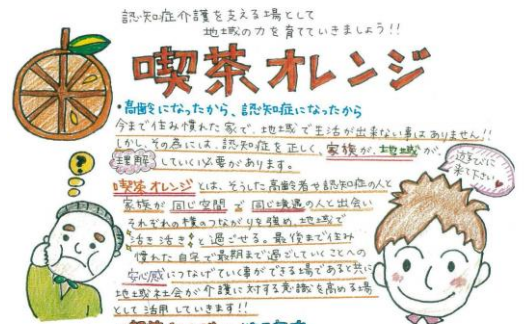 認知症介護を支える場として
地域の力を育てていきましょう!!
喫茶オレンジ
・高齢になったから、認知症になったから
今まで住み慣れた家で、地域で生活が出来ない事はありません!!
しかし、その為には、認知症を正しく、家族が、地域が、
理解していく必要があります。
遊びに
来て下さい
喫茶オレンジとは、そうした高齢者や認知症の人と
家族が同じ空間で同じ境遇の人と出会い
それぞれの横のつながりを強め、地域で
活き活きと過ごせる。最後まで住み
慣れた自宅で最期まで過ごしていくことへの
安心感につなげていく事ができる場であると共に
地域社会が介護に対する意識を高める場
として活用していきます!!